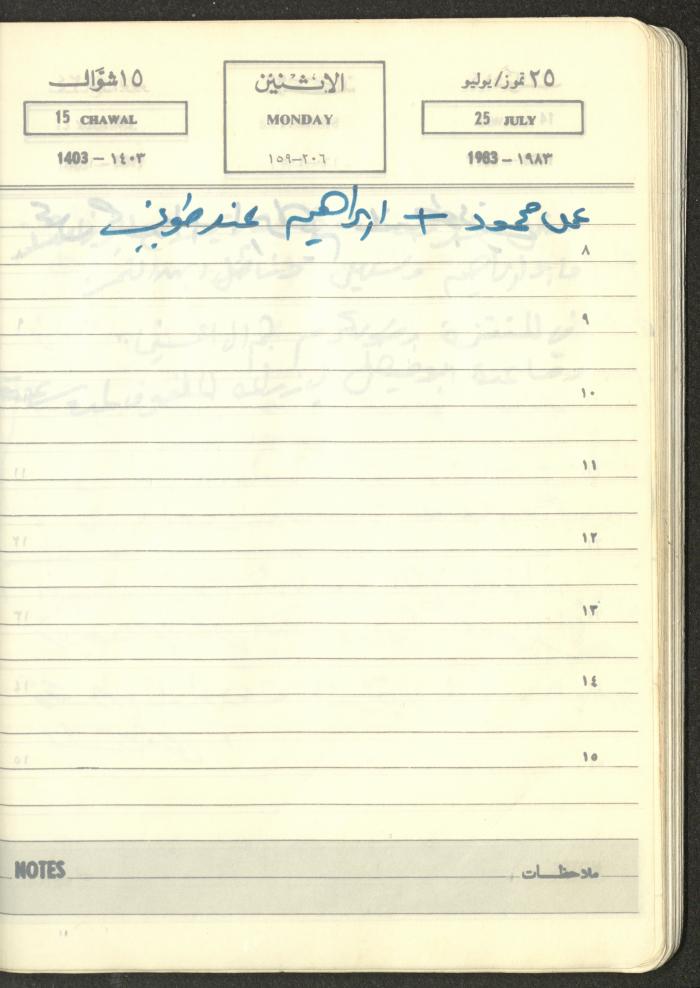 ١٥ شوّال
15 CHAWAL
1403 – ١٤٠٣
الاثنين
MONDAY
١٥٩–٢٠٦
٢٥ تموز/يوليو
25 JULY
1983 – ١٩٨٣
محمود + ابراهيم عند طوني
٨
٩
١٠
١١
١٢
١٣
١٤
١٥
NOTES
ملاحظات